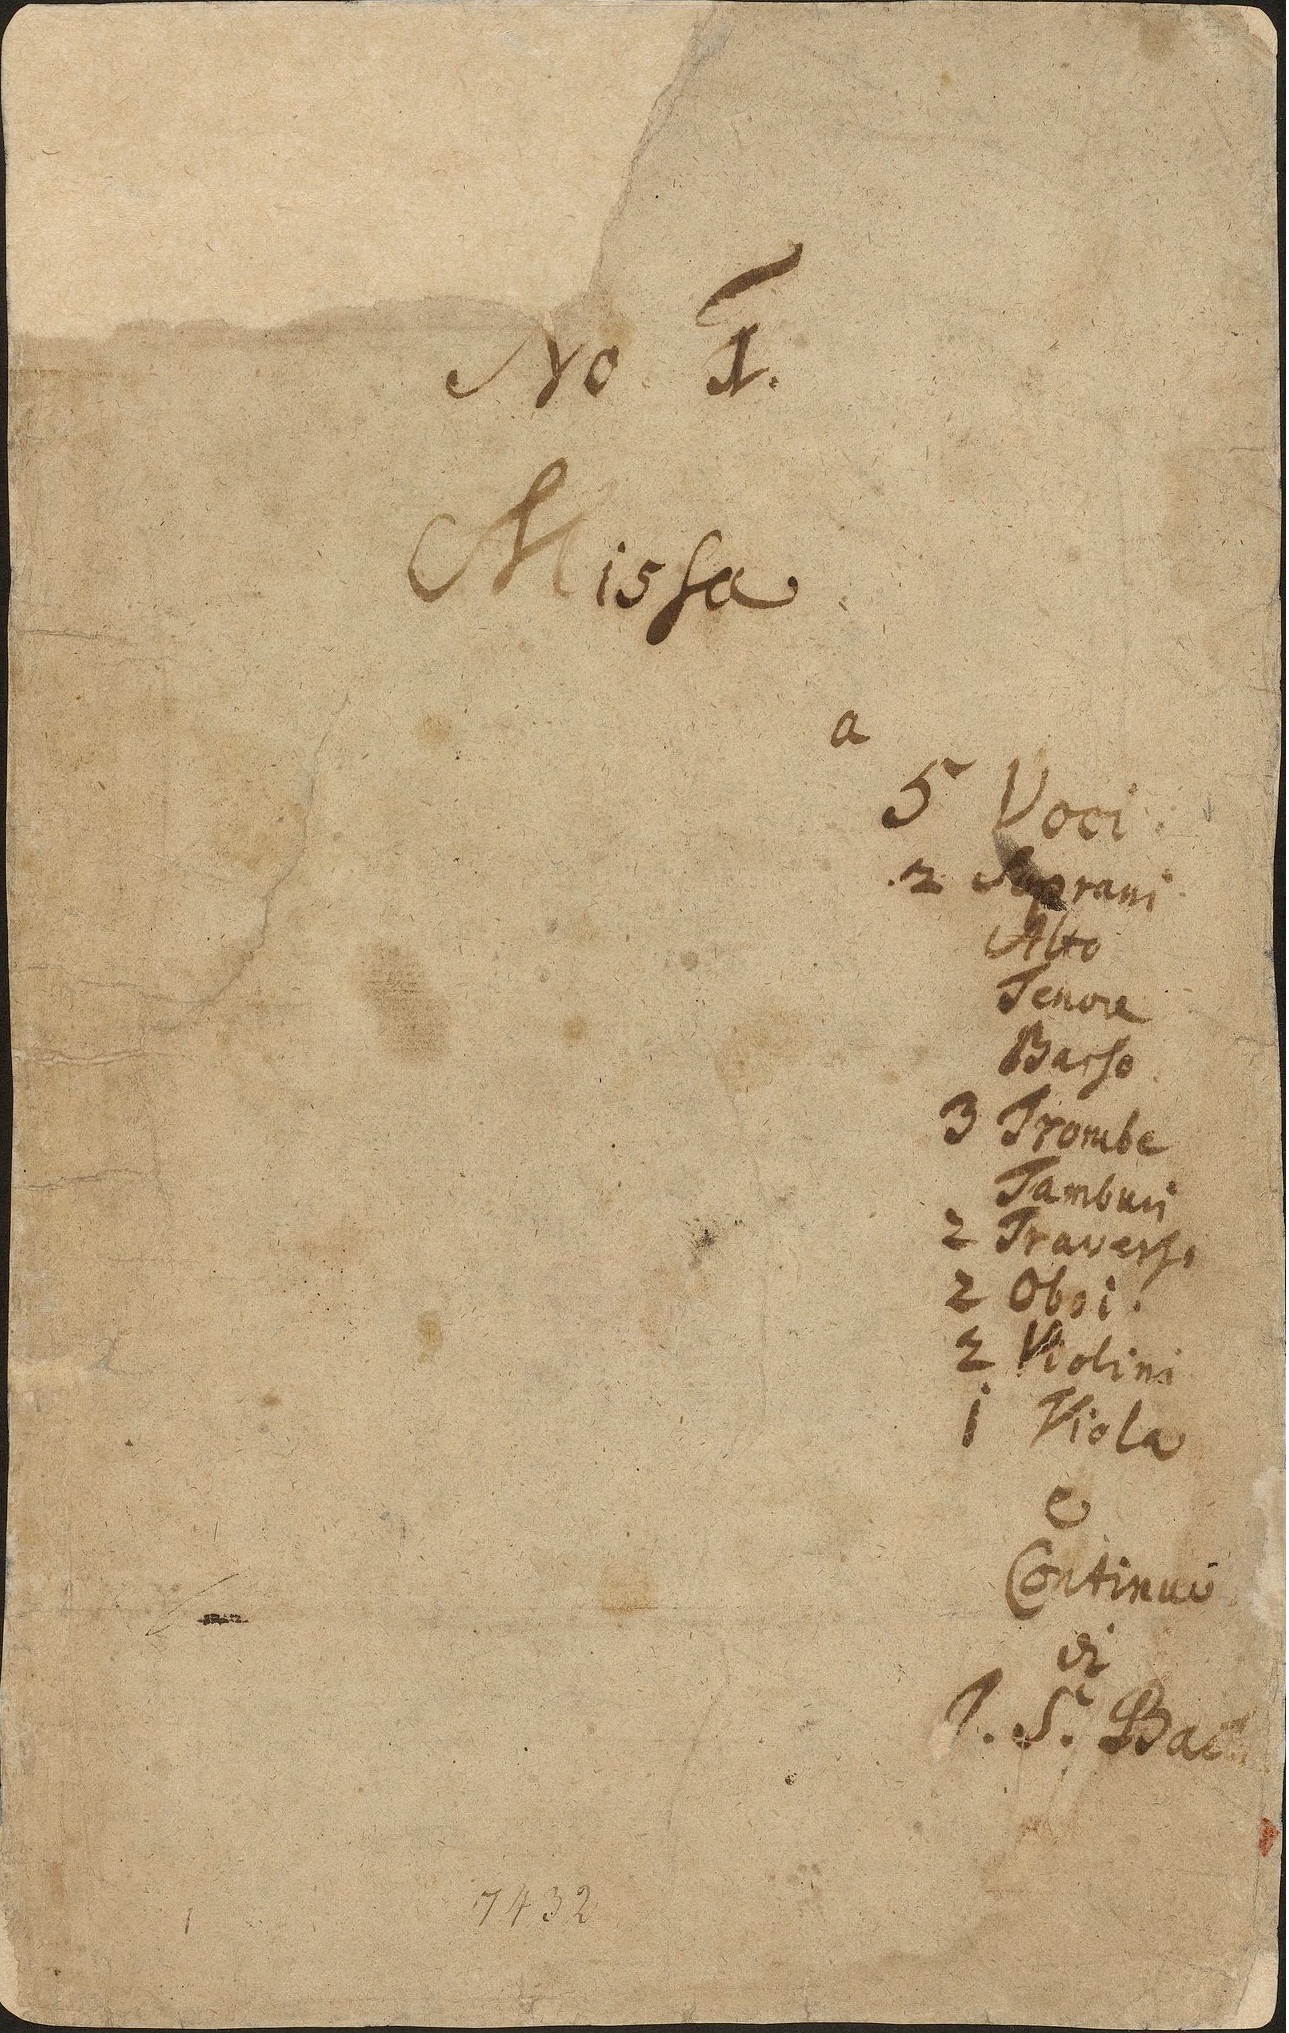 No I.
Missa
a
5 Voci.
2 Soprani
Alto
Tenore
Basso
3 Trombe
Tamburi
2 Traversi
2 Oboi.
2 Violini
1 Viola
e
Continuo
di
J. S. Bach
7432
1